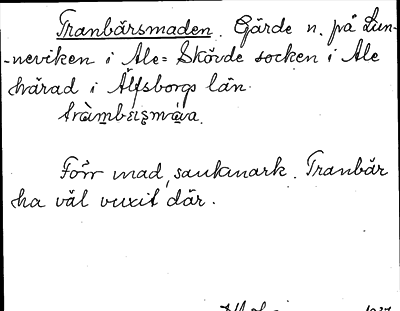 Tranbärsmaden. Gärde n. på Lun-
-neviken i Ale-Skövde socken i Ale
härad i Älfsborgs län.
Förr mad, sankmark. Tranbär
ha väl vuxit där.